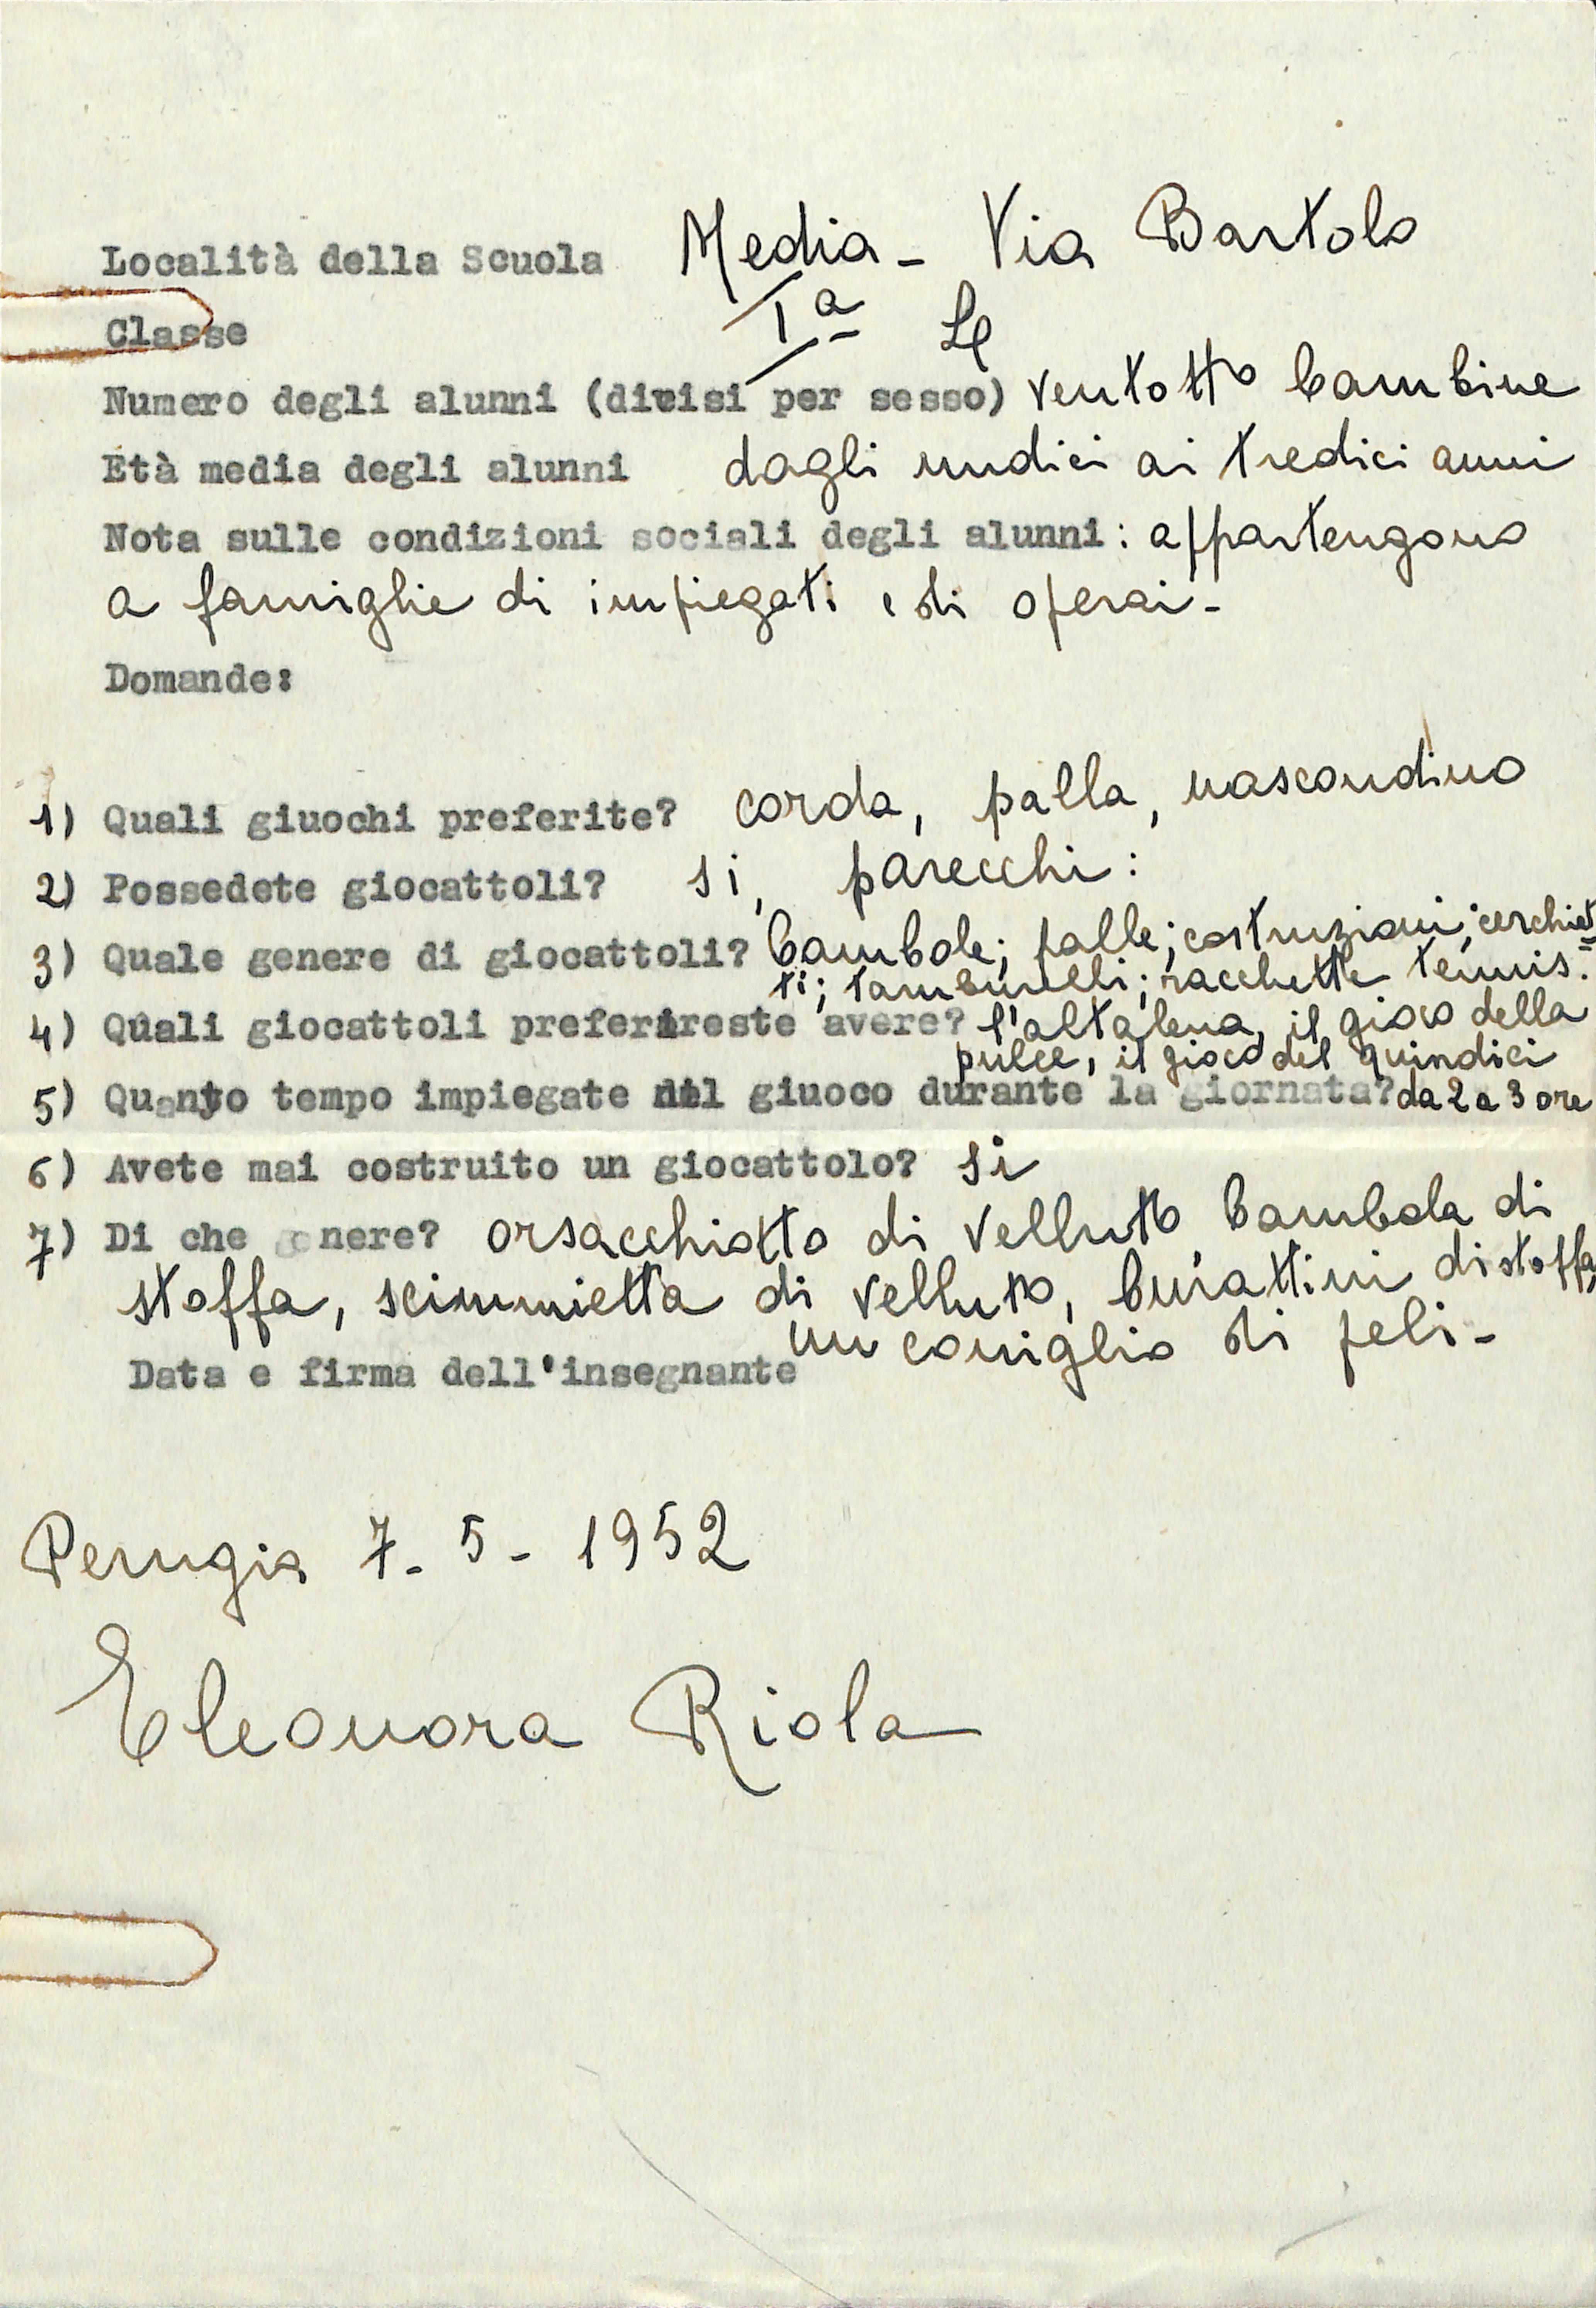 Località della Scuola Media - Via Bartolo
Classe Iª
Numero degli alunni (divisi per sesso) ventotto bambine
Età media degli alunni dagli undici ai tredici anni
Nota sulle condizioni sociali degli alunni: appartengono
a famiglie di impiegati e di operai -
Domande:
1) Quali giuochi preferite? corda, palla, nascondino
2) Possedete giocattoli? si, parecchi:
3) Quale genere di giocattoli? bambole; palle; costruzioni; cerchiet=
ti; tamburelli; racchette tennis.
4) Quali giocattoli preferireste avere? l'altalena, il gioco della
pulce, il gioco del quindici
5) Quanto tempo impiegate nel giuoco durante la giornata? da 2 a 3 ore
6) Avete mai costruito un giocattolo? si
7) Di che genere? orsacchiotto di velluto, bambola di
stoffa, scimmietta di velluto, burattini di stoffa,
un coniglio di peli -
Data e firma dell'insegnante
Perugia 7 - 5 - 1952
Eleonora Riola